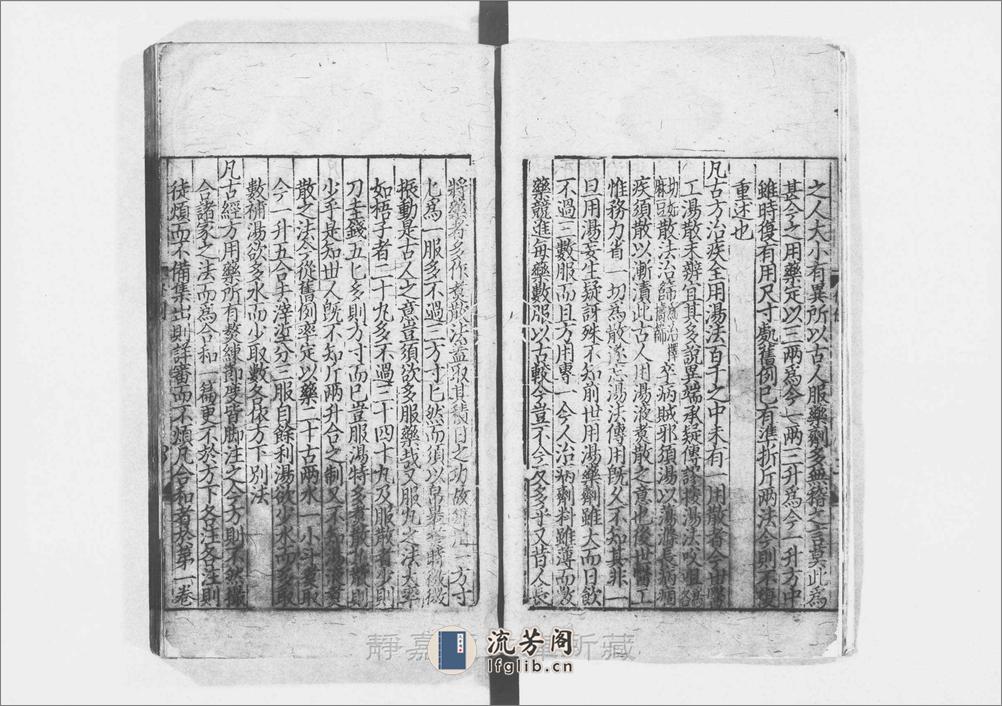 之人大小有異所以古人服藥劑多無稽之言莫此為
甚今之用藥定以三兩為今一兩三升為今一升方中
雖時復有用尺寸處舊例已有準折斤兩法今則不復
重述也
凡古方治疾全用湯法百千之中未有一用散者今出
工湯散未辨宜其多說異端承疑傳謬按湯法㕮咀為
散法治篩卒病賊邪須湯以蕩滌長病痼
疾須散以漸漬此古人用湯液煮散之意也後世醫工
惟務力省一切為散遂忘湯法傳用既久不知其非一
曰用湯妄生疑訝殊不知前世用湯藥劑雖大而日飲
不過三數服而且方用專一今人治病劑料雖薄而數
藥競進每藥數服以古較今豈不今反多乎又昔人長
將藥者多作煮散法蓋取其積日之功故 方寸
匕為一服多不過三方寸匕然而須以帛裹煮時微微
振動是古人之意豈須欲多服藥哉又服丸之法大率
如梧子者二十丸多不過三十四十丸及服散者少則
刀圭錢五匕多則方寸而已豈服湯特多煮散丸散則
少乎是知世人既不知斤兩升合之制又不知湯液煮
散之法今從舊例率定以藥二十古兩水一小斗煮取
今一升五合去滓垽分三服自餘利湯欲少水而多取
數補湯欲多水而少取數各依方下別法
凡古經方用藥所有熬鍊節度皆腳注之今方則不然撮
合諸家之法而為合和一篇更不於方下各注各注則
徒煩而不備集出則詳審而不煩凡合和者於第一卷
流芳阁
lfglib.cn
靜嘉 所藏